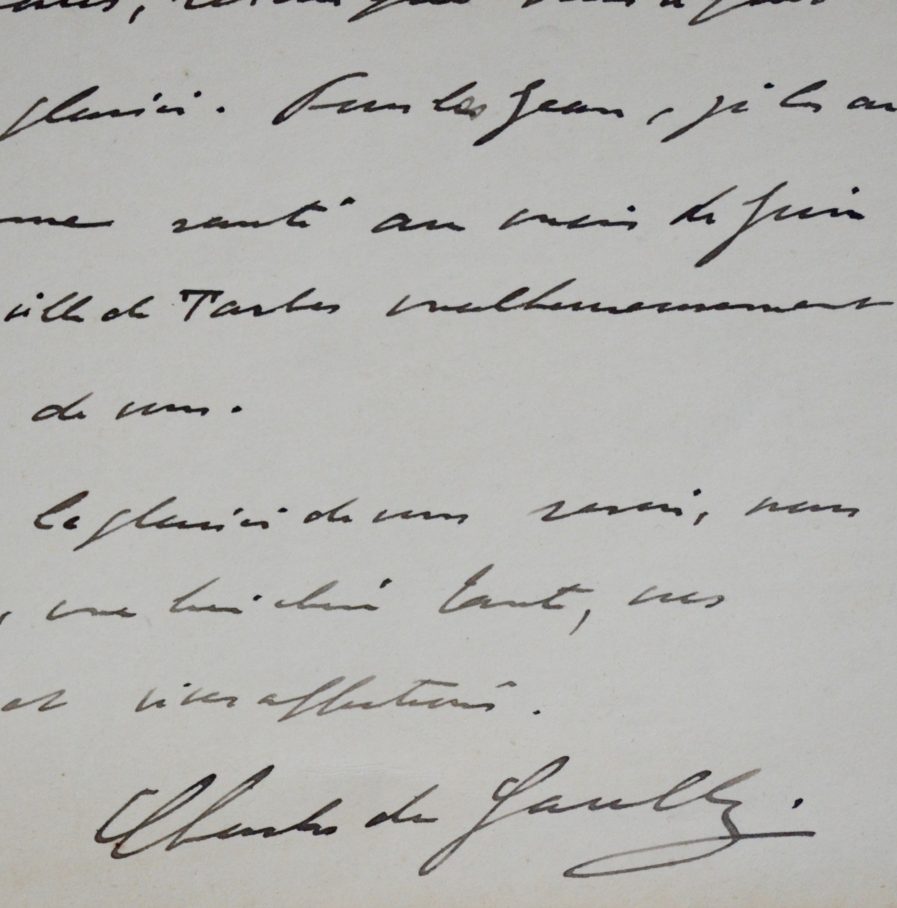 plaisir. Pour les Jean, je les ai
santé au mois de Juin
ville de Tarbes malheureusement
de vous.
le plaisir de vous revoir, nous
, ma bien chère tante, nos
et vives affections.
Charles de Gaulle.